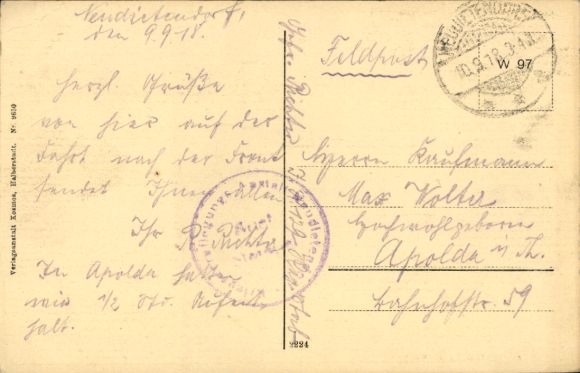 Neudietendorf,
den 9.9.18.
herzl. Grüße
von hier auf der
Fahrt nach der Front
sendet Ihnen allen
Ihr R. Richter
In Apolda hatten
wir ½ Std. Aufent-
halt.
Verlagsanstalt Kosmos, Halberstadt. Nr 9610
Feldpost
NEUDIETENDORF
10.9.18.
W 97
Herrn Kaufmann
Max Wolter
Hochwohlgeboren
Apolda i. Th.
Bahnhofstr. 59
2224